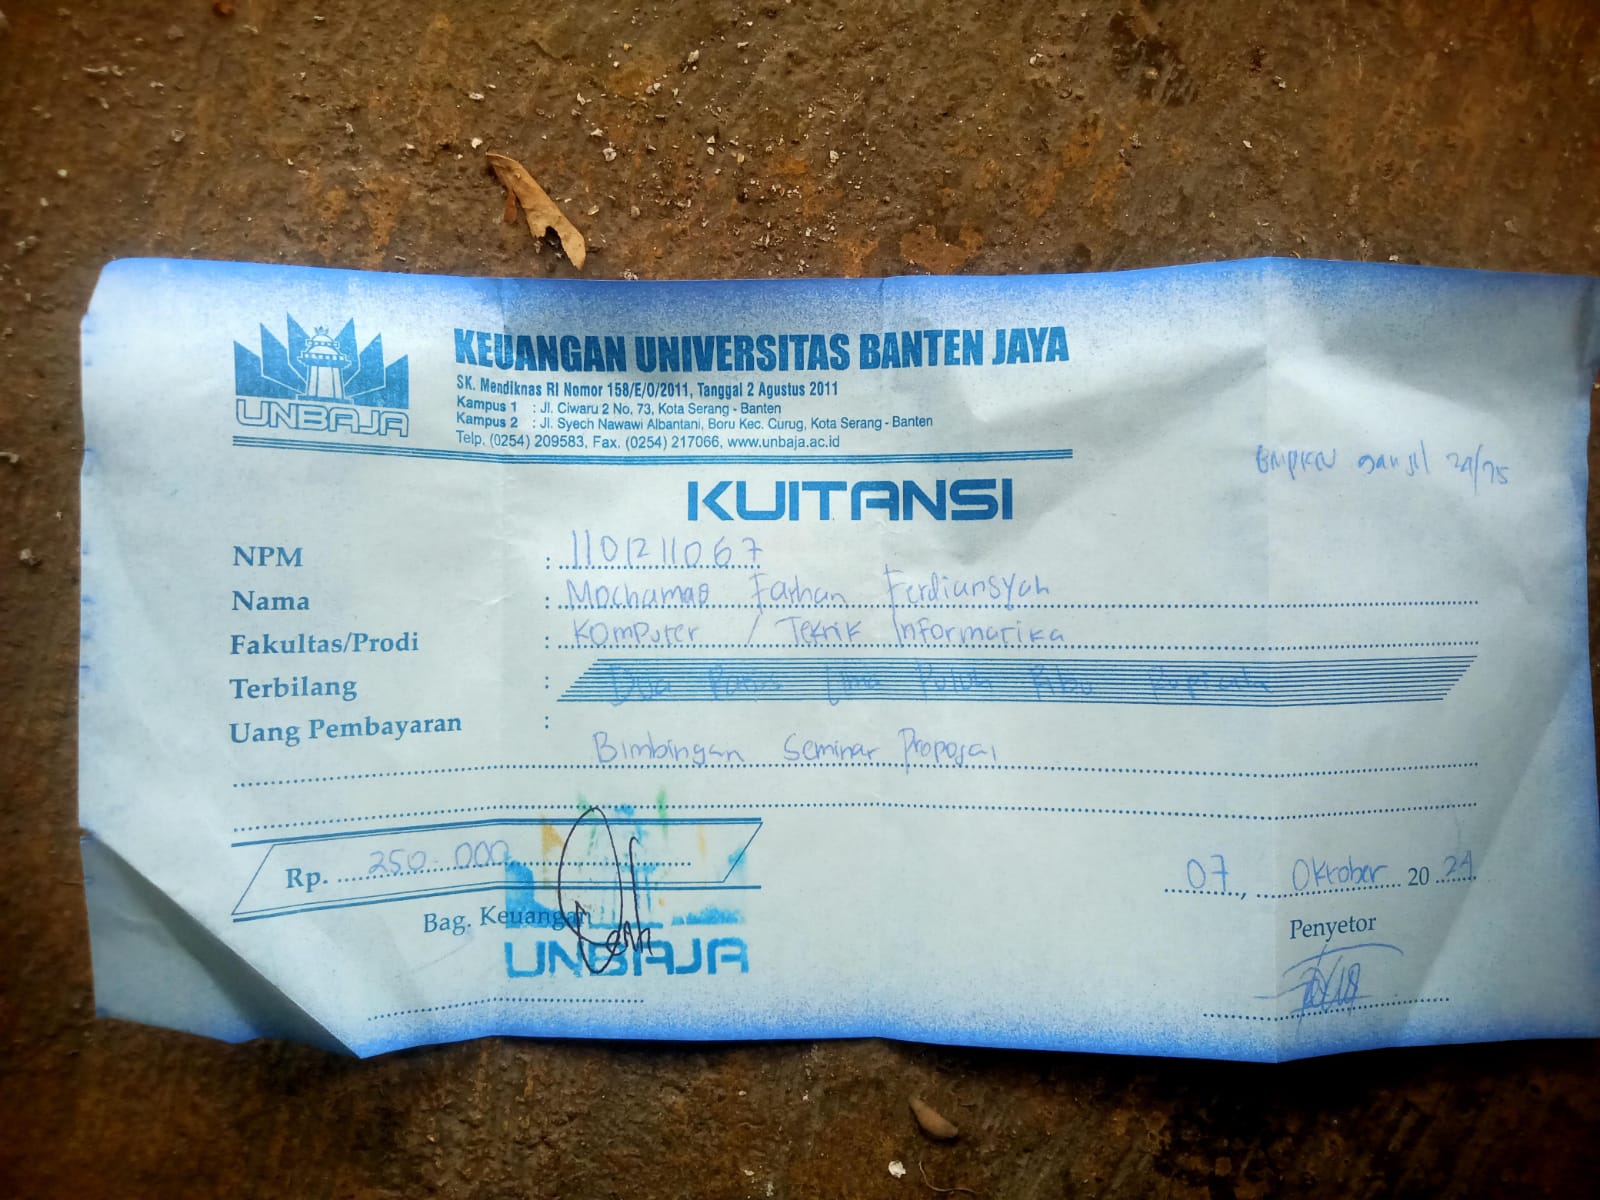 UNBAJA
KEUANGAN UNIVERSITAS BANTEN JAYA
SK. Mendiknas RI Nomor 158/E/O/2011, Tanggal 2 Agustus 2011
Kampus 1 : Jl. Ciwaru 2 No, 73, Kota Serang - Banten
Kampus 2 : Jl. Syech Nawawi Albantani, Boru Kec. Curug, Kota Serang - Banten
Telp. (0254) 209583, Fax. (0254) 217066, www.unbaja.ac.id
ganjil 24/25
KUITANSI
NPM : 1101211067
Nama : Mochamad Farhan Ferdiansyah
Fakultas/Prodi : Komputer / Teknik Informatika
Terbilang : Dua Ratus Lima Puluh Ribu Rupiah
Uang Pembayaran :
Bimbingan Seminar Proposal
Rp. 250.000
07, Oktober 2024
Bag. Keuangan
Penyetor
UNBAJA